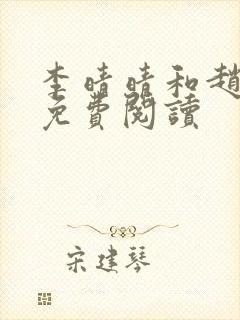 李晴晴和趙
免費閱讀
宋建琴